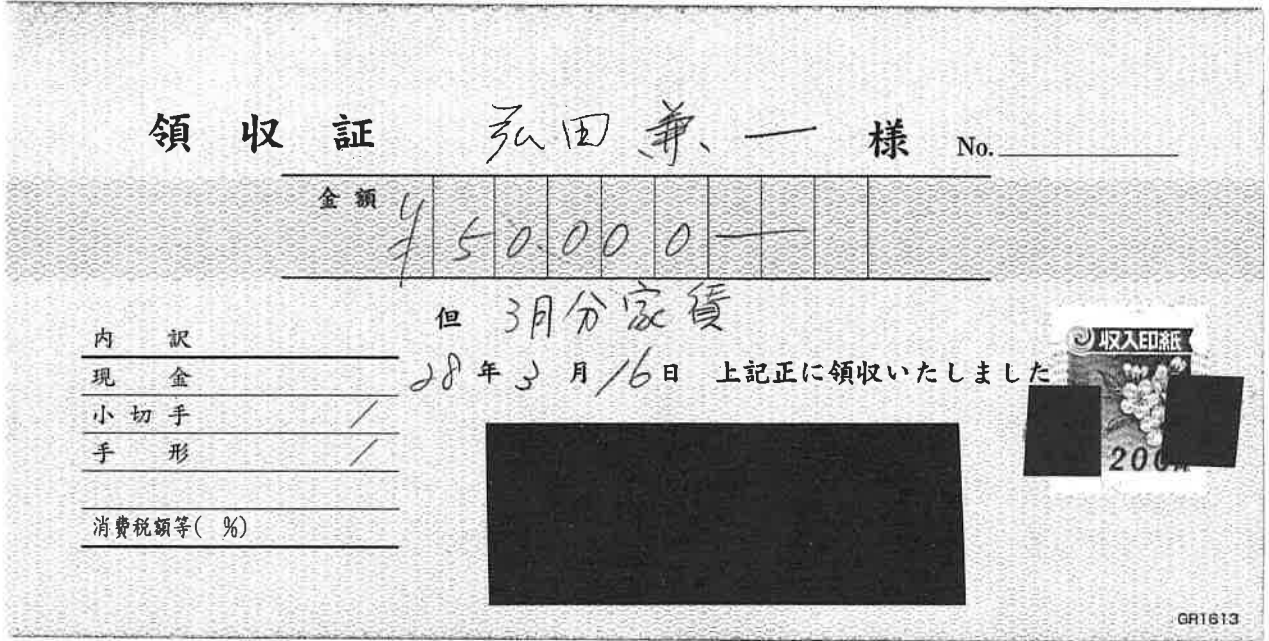 領収証 弘田兼一 様 No.
金額 ¥50.000-
但 3月分家賃
28年3月16日 上記正に領収いたしました
収入印紙
200
内訳
現金
小切手 /
手形 /
消費税額等( %)
GR1613